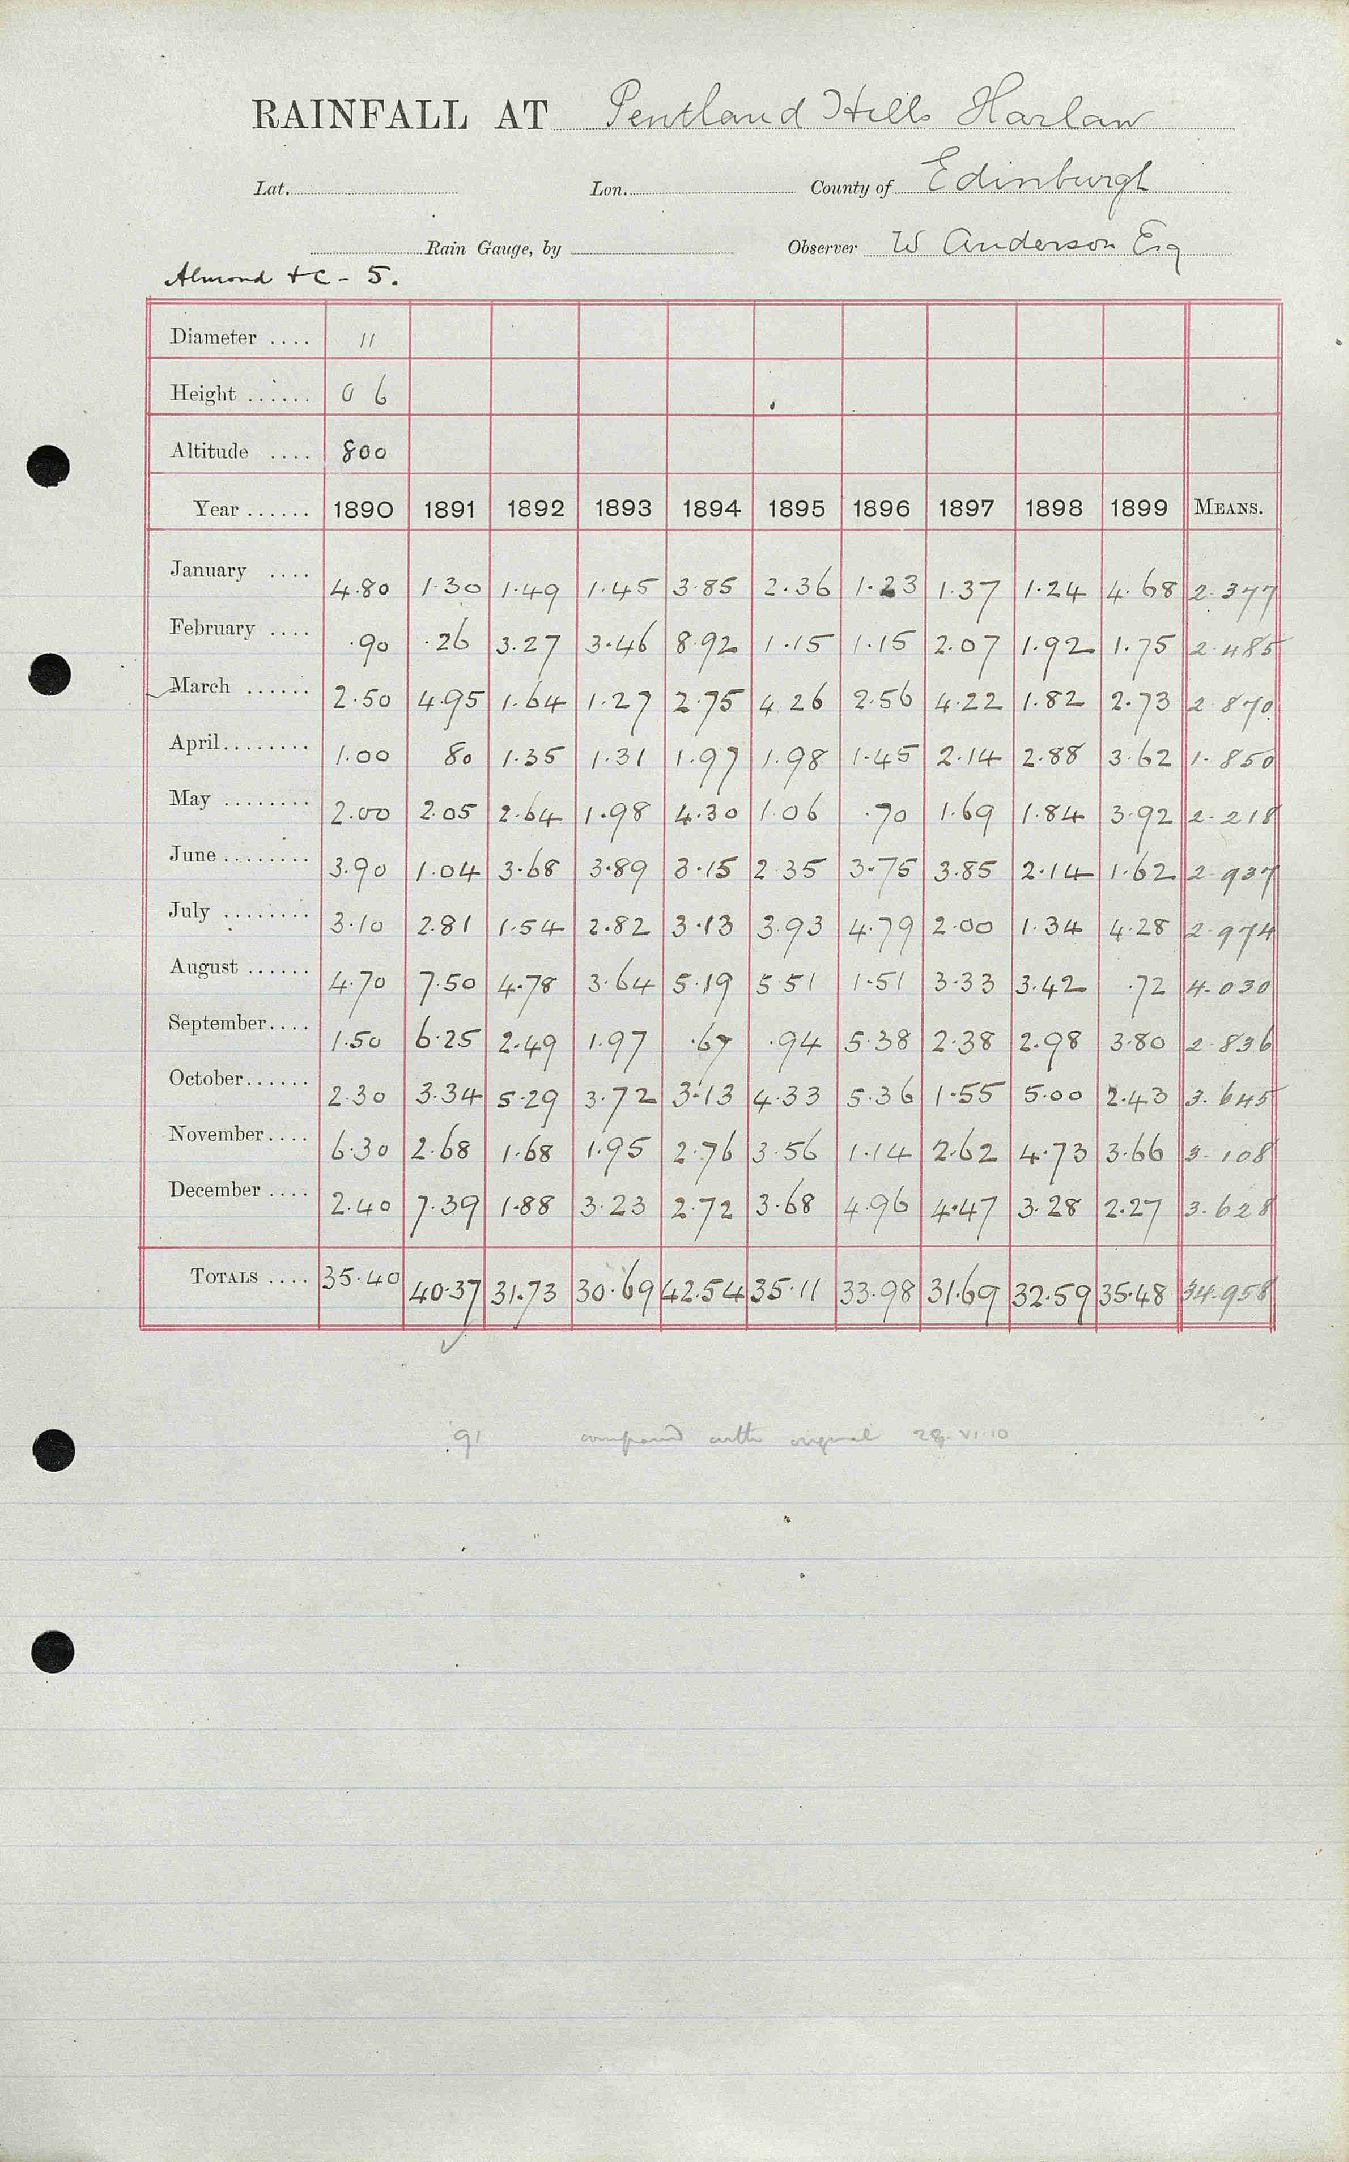 RAINFALL AT Pentland Hills Harlaw
Lat. Lon. County of Edinburgh
Rain Gauge, by Observer W Anderson Esq
Almond & C - 5.
Diameter .... 11
Height ...... 0 6
Altitude .... 800
Year ...... 1890 1891 1892 1893 1894 1895 1896 1897 1898 1899 MEANS.
January .... 4.80 1.30 1.49 1.45 3.85 2.36 1.23 1.37 1.24 4.68 2.377
February .... .90 .26 3.27 3.46 8.92 1.15 1.15 2.07 1.92 1.75 2.485
March ...... 2.50 4.95 1.64 1.27 2.75 4.26 2.56 4.22 1.82 2.73 2.870
April........ 1.00 80 1.35 1.31 1.97 1.98 1.45 2.14 2.88 3.62 1.850
May ........ 2.00 2.05 2.64 1.98 4.30 1.06 .70 1.69 1.84 3.92 2.218
June ........ 3.90 1.04 3.68 3.89 3.15 2.35 3.75 3.85 2.14 1.62 2.937
July ........ 3.10 2.81 1.54 2.82 3.13 3.93 4.79 2.00 1.34 4.28 2.974
August ...... 4.70 7.50 4.78 3.64 5.19 5.51 1.51 3.33 3.42 .72 4.030
September.... 1.50 6.25 2.49 1.97 .67 .94 5.38 2.38 2.98 3.80 2.836
October...... 2.30 3.34 5.29 3.72 3.13 4.33 5.36 1.55 5.00 2.43 3.645
November.... 6.30 2.68 1.68 1.95 2.76 3.56 1.14 2.62 4.73 3.66 3.108
December .... 2.40 7.39 1.88 3.23 2.72 3.68 4.96 4.47 3.28 2.27 3.628
TOTALS .... 35.40 40.37 31.73 30.69 42.54 35.11 33.98 31.69 32.59 35.48 34.958
'91 compared with original 28.VI.10